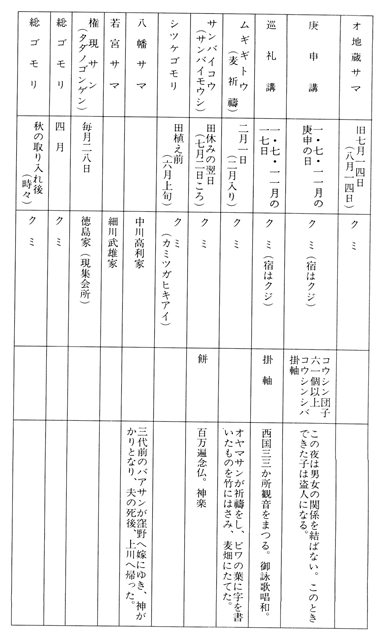 オ地蔵サマ
旧七月一四日
(八月一四日)
クミ
庚申講
一・七・一一月の
庚申の日
クミ(宿はクジ)
コウシン団子
六一個以上
コウシンシバ
掛軸
この夜は男女の関係を結ばない。このとき
できた子は盗人になる。
巡礼講
一・七・一一月の
一七日
クミ(宿はクジ)
掛軸
西国三三か所観音をまつる。御詠歌唱和。
ムギギトウ
(麦祈禱)
二月一日
(二月入り)
クミ
オヤマサンが祈禱をし、ビワの葉に字を書
いたものを竹にはさみ、麦畑にたてた。
サンバイコウ
(サンバイモウシ)
田休みの翌日
(七月二日ころ)
クミ
餅
百万遍念仏。神楽
シツケゴモリ
田植え前
(六月上旬)
クミ
(カミツガヒキアイ)
八幡サマ
中川高利家
三代前のバアサンが窪野へ嫁にゆき、神が
かりとなり、夫の死後、上川へ帰った。
若宮サマ
細川武雄家
権現サン
(タダノゴンゲン)
毎月二八日
徳島家(現集会所)
総ゴモリ
四月
クミ
総ゴモリ
秋の取り入れ後
(時々)
クミ